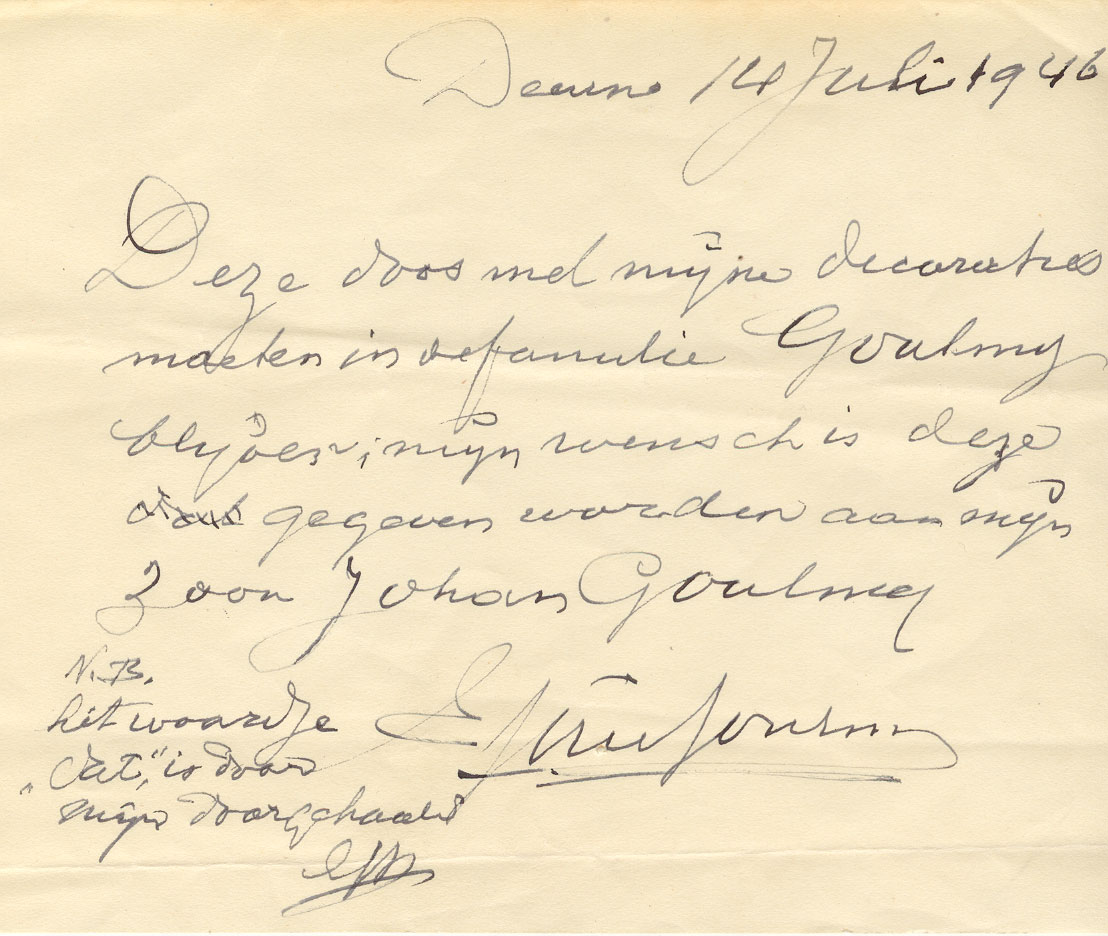 Deurne 14 Juli 1946
Deze doos met mijne decoraties
moeten in de familie Goulmy
blijven; mijn wensch is deze
gegeven worden aan mijn
Zoon Johan Goulmy
N.B.
het woordje
„dat", is door
mijn doorgehaald